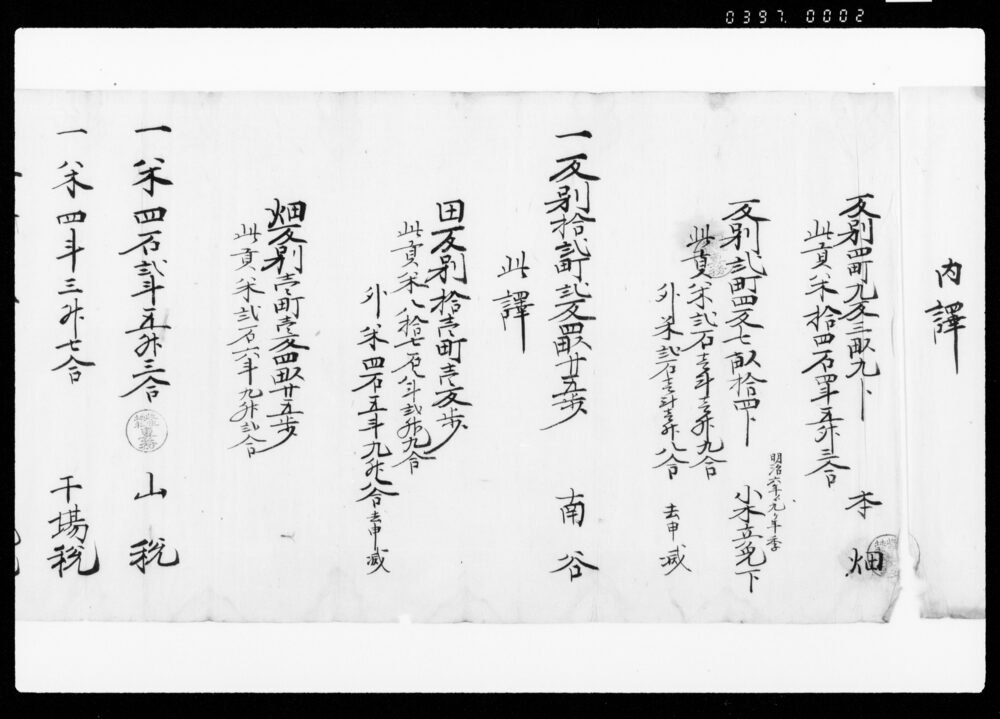 0397.0002
内譯
反別四町九反三畝九卜 本畑
此貢米拾四石四斗五升三合
反別弐町四反七畝拾四卜 小木立免下
明治六年ゟ九ケ年季
此貢米弐石壱斗三升九合
外米弐石壱斗壱升八合 去申減
一反別拾弐町弐反四畝廿五歩 南谷
此譯
田反別拾壱町壱反歩
此貢米八拾七石八斗弐升九合
外米四石五斗九升八合 去申減
畑反別壱町壱反四畝廿五歩
此貢米弐石六斗九升弐合
一米四石弐斗五升三合 山税
一米四斗三升七合 干場税